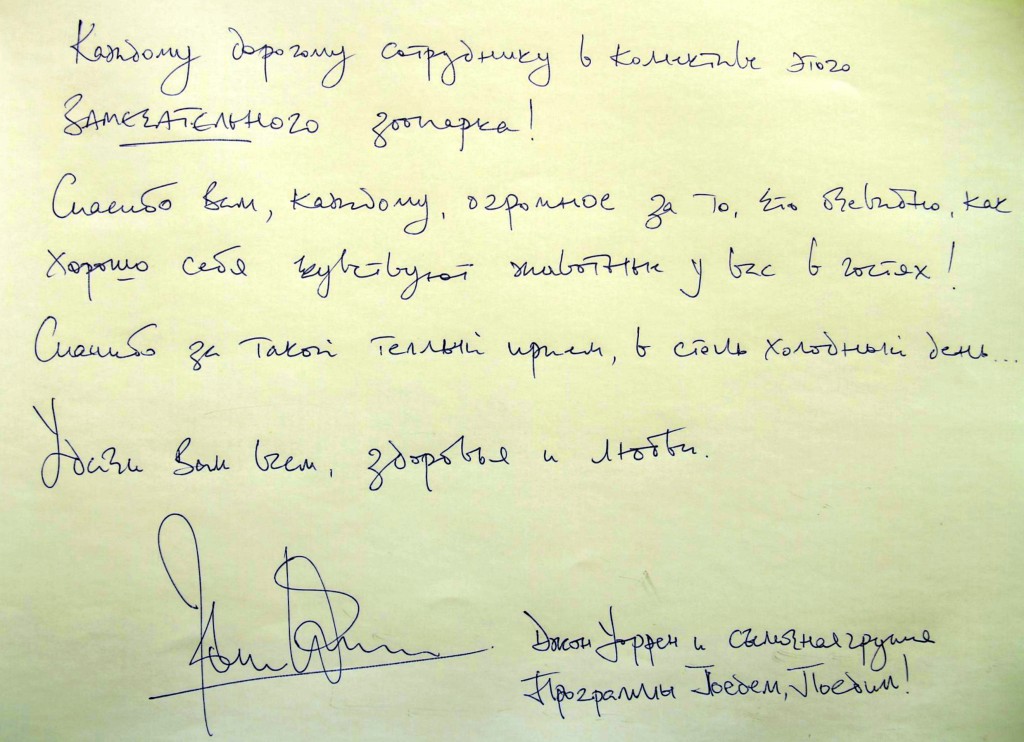 Каждому дорогому сотруднику в колективе этого
ЗАМЕЧАТЕЛЬНОГО зоопарка!
Спасибо Вам, каждому, огромное за то, что очевидно, как
хорошо себя чувствуют животные у вас в гостях!
Спасибо за такой теплый прием, в столь холодный день...
Удачи Вам всем, здоровья и любви.
Джон Уоррен и съемочная группа
Программы Поедем, Поедим!